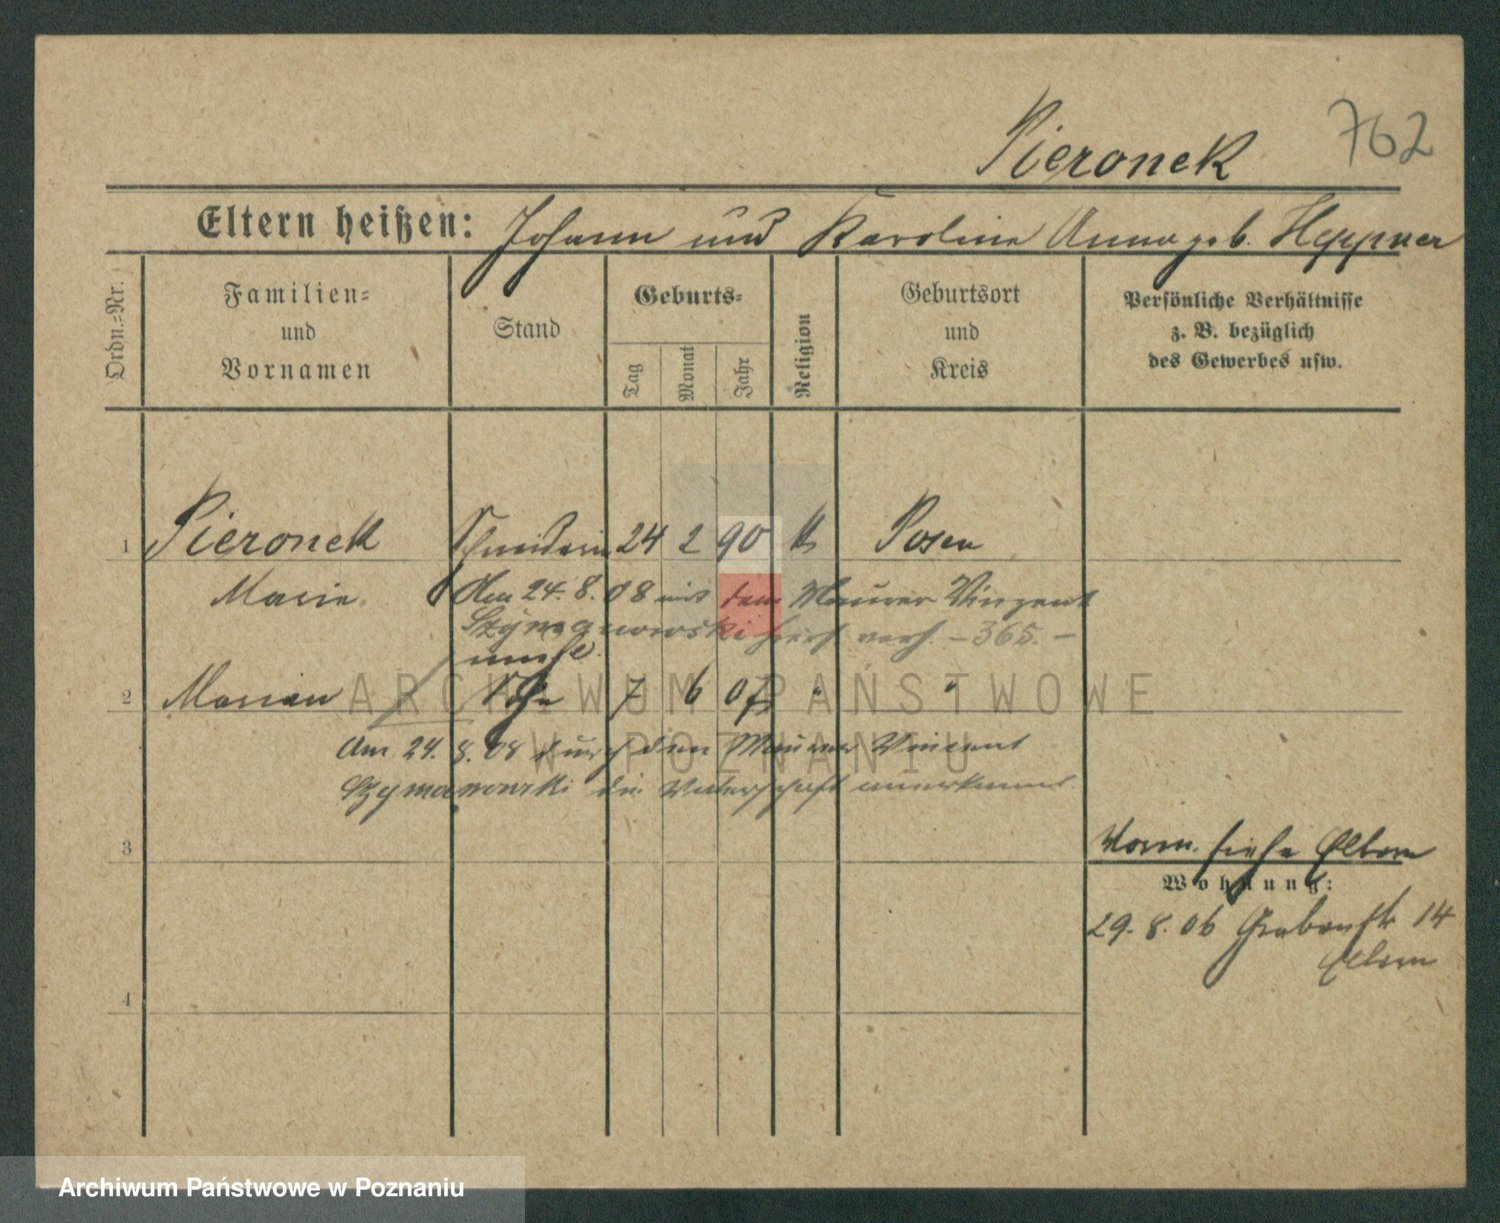 Pieronek 762
Eltern heißen: Johann und Karoline Anna geb. Heppner
Ordn.-Nr.
Familien-
und
Vornamen
Stand
Geburts-
Tag
Monat
Jahr
Religion
Geburtsort
und
Kreis
Persönliche Verhältnisse
z. B. bezüglich
des Gewerbes usw.
1 Pieronek Schneiderin 24 2 90 k Posen
Marie Am 24. 8. 08 mit dem Maurer Vinzent
Szymanowski hier verh. – 365. –
unehl.
2 Marian Sohn 7 6 07 " "
Am 24. 8. 08 durch den Maurer Vincent
Szymanowski die Vaterschaft anerkannt
3
Vorm. siehe Eltern
Wohnung:
29. 8. 06 Grabenstr 14
Eltern
4
ARCHIWUM PAŃSTWOWE
W POZNANIU
Archiwum Państwowe w Poznaniu